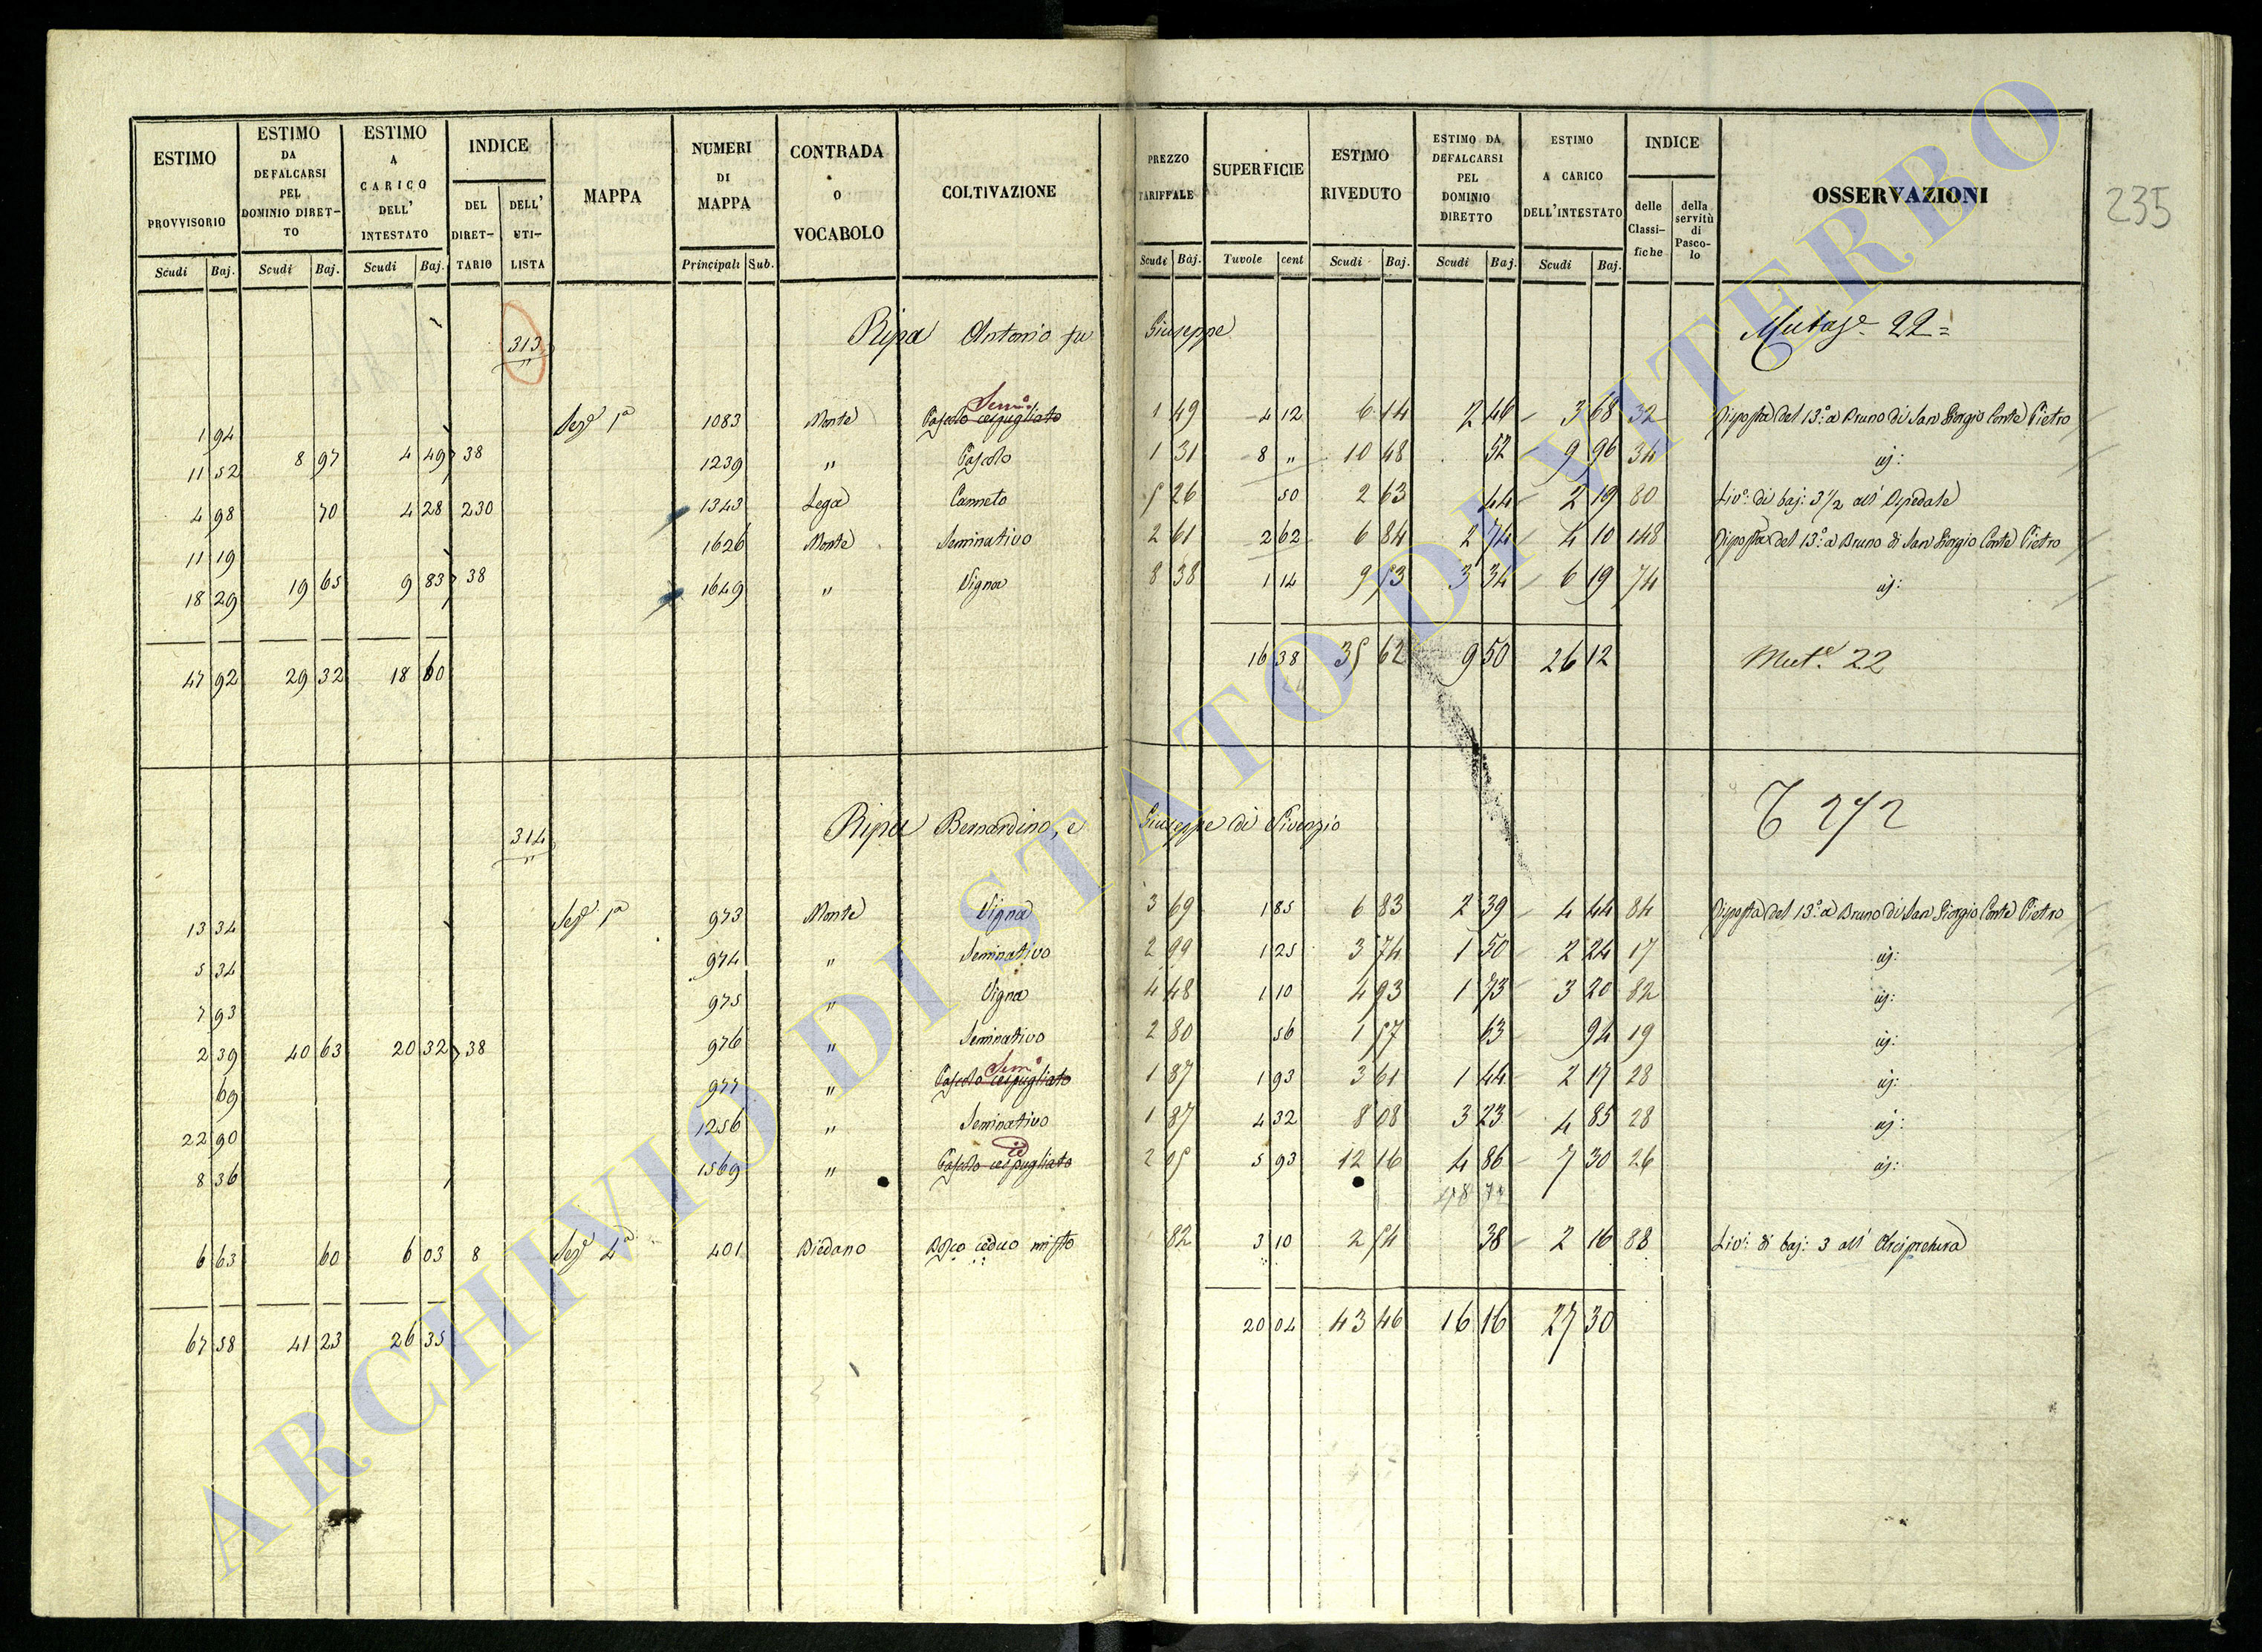 ESTIMO PROVVISORIO ESTIMO DA DEFALCARSI PEL DOMINIO DIRETTO ESTIMO A CARICO DELL' INTESTATO INDICE DEL DIRETTARIO DELL' UTILISTA MAPPA NUMERI DI MAPPA CONTRADA O VOCABOLO COLTIVAZIONE PREZZO TARIFFALE SUPERFICIE ESTIMO RIVEDUTO ESTIMO DA DEFALCARSI PEL DOMINIO DIRETTO ESTIMO A CARICO DELL'INTESTATO INDICE delle Classifiche della servitù di Pascolo OSSERVAZIONI
Scudi Baj. Scudi Baj. Scudi Baj. Principali Sub. Scudi Baj. Tavole cent Scudi Baj. Scudi Baj. Scudi Baj.
235
313 Ripa Antonio fu Giuseppe 22=
1 94 Sezᵉ 1ª 1083 Monte Pascolo cespugliato Semᵒ 1 49 4 12 6 14 2 46 3 68 32 Risposta del 13:ᵒ a Bruno di San Giorgio Conte Pietro
11 52 8 97 4 49 38 1239 " Pascolo 1 31 8 " 10 48 52 9 96 34 id:
4 98 70 4 28 230 1343 Lega Canneto 5 26 50 2 63 44 2 19 80 Livᵒ: di baj: 3½ all' Ospedale
11 19 1626 Monte Seminativo 2 61 2 62 6 84 2 74 4 10 148 Risposta del 13:ᵒ a Bruno di San Giorgio Conte Pietro
18 29 19 65 9 83 38 1649 " Vigna 8 38 1 14 9 53 3 34 6 19 74 id:
47 92 29 32 18 60 16 38 35 62 9 50 26 12 Mutᵉ 22
314 Ripa Bernardino, e Giuseppe di Vivenzio 272
13 34 Sezᵉ 1ª 973 Monte Vigna 3 69 1 85 6 83 2 39 4 44 84 Risposta del 13:ᵒ a Bruno di San Giorgio Conte Pietro
5 34 974 " Seminativo 2 99 1 25 3 74 1 50 2 24 17 id:
7 93 975 " Vigna 4 48 1 10 4 93 1 73 3 20 82 id:
2 39 40 63 20 32 38 976 " Seminativo 2 80 56 1 57 63 94 19 id:
69 977 " Pascolo cespugliato Semᵒ 1 87 1 93 3 61 1 44 2 17 28 id:
22 90 1256 " Seminativo 1 87 4 32 8 08 3 23 4 85 28 id:
8 36 1569 " Pascolo cespugliato id 2 05 5 93 12 16 4 86 7 30 26 id:
6 63 60 6 03 8 Sezᵉ 4ª 401 Biedano Bosco ceduo misto 82 3 10 2 54 38 2 16 88 Livᵒ: di baj: 3 all' Arcipretura
67 58 41 23 26 35 20 04 43 46 16 16 27 30
ARCHIVIO DI STATO DI VITERBO